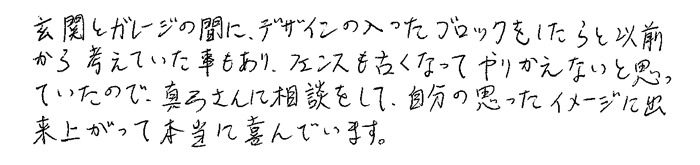 玄関とガレージの間に、デザインの入ったブロックをしたらと以前
から考えていた事もあり、フェンスも古くなってやりかえないと思っ
ていたので、真弓さんに相談をして、自分の思ったイメージに出
来上がって本当に喜んでいます。